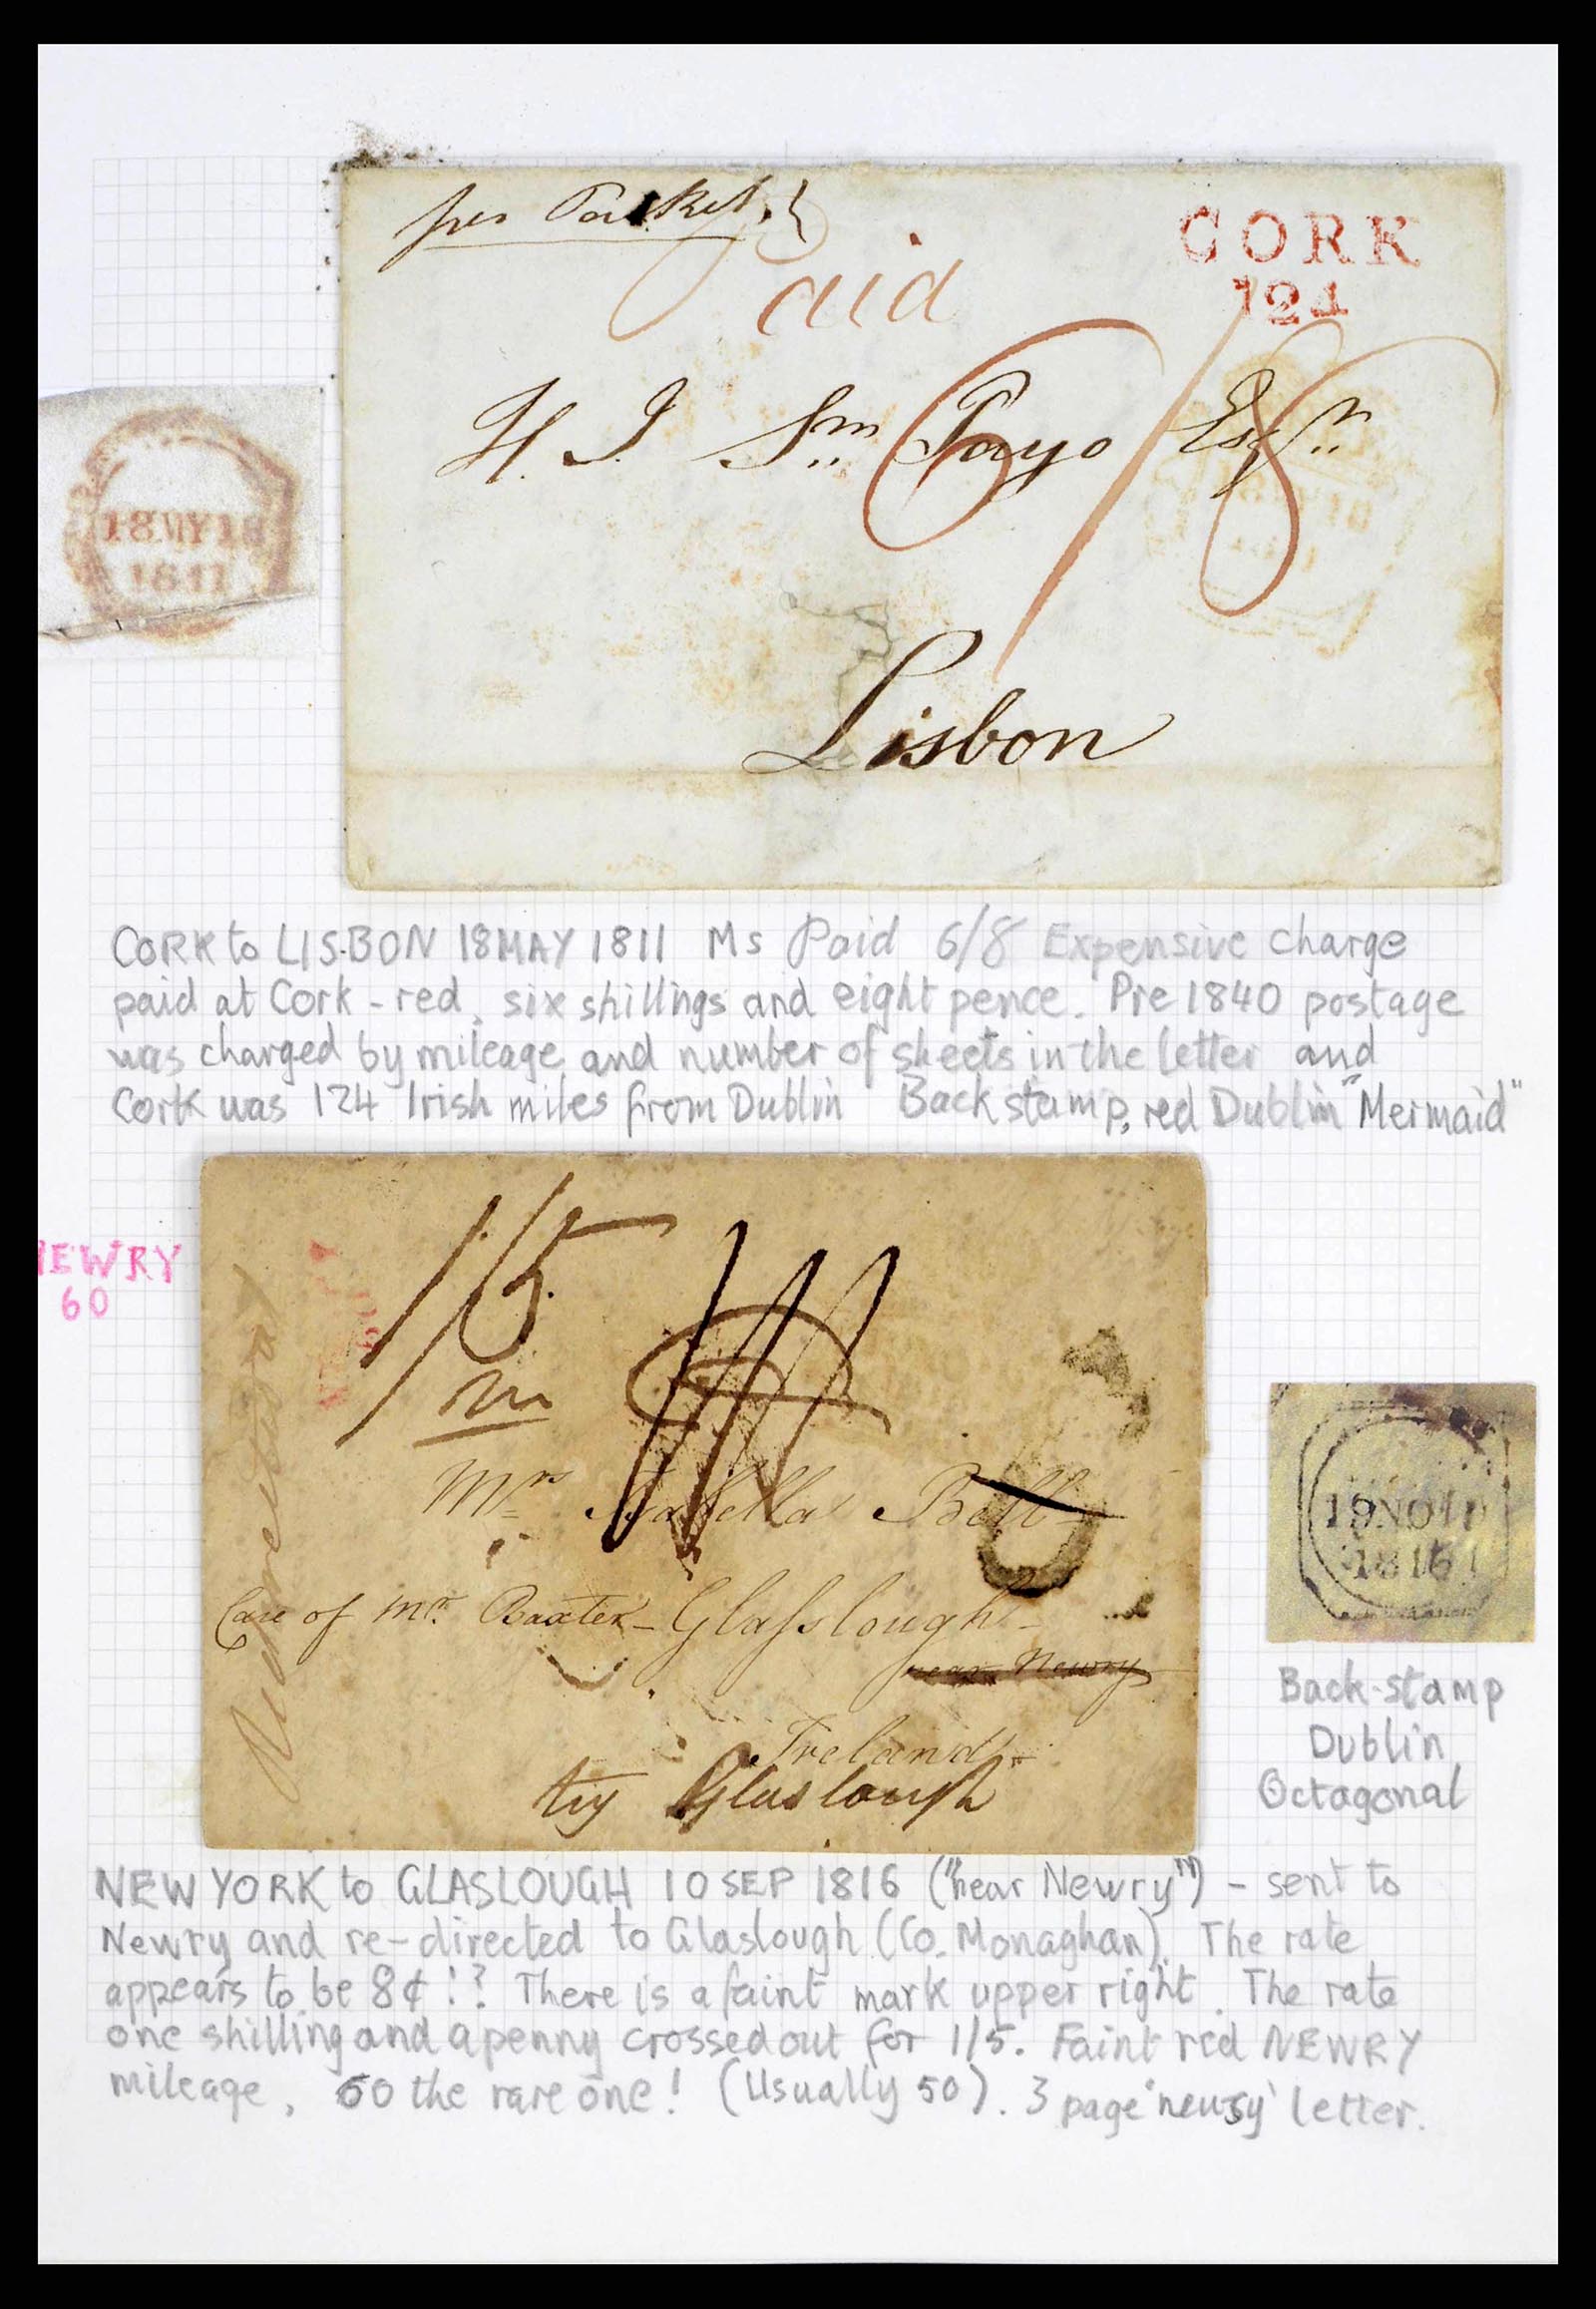 per Packet.
CORK
124
Paid
6/8
H. J. Sm Payo Esqr
18MY18
1811
Lisbon
CORK to LISBON 18 MAY 1811 Ms Paid 6/8 Expensive charge
paid at Cork - red, six shillings and eight pence. Pre 1840 postage
was charged by mileage and number of sheets in the letter and
Cork was 124 Irish miles from Dublin Back stamp, red Dublin "Mermaid"
NEWRY
60
1/5
Mrs Isabella Bell
Care of Mr. Baxter - Glasslough -
near Newry
Ireland
try Glaslough
19NO19
1816
Back-stamp
Dublin
Octagonal
NEW YORK to GLASLOUGH 10 SEP 1816 ("near Newry") - sent to
Newry and re-directed to Glaslough (Co. Monaghan). The rate
appears to be 8¢!? There is a faint mark upper right. The rate
one shilling and a penny crossed out for 1/5. Faint red NEWRY
mileage, 60 the rare one! (Usually 50). 3 page 'newsy' letter.